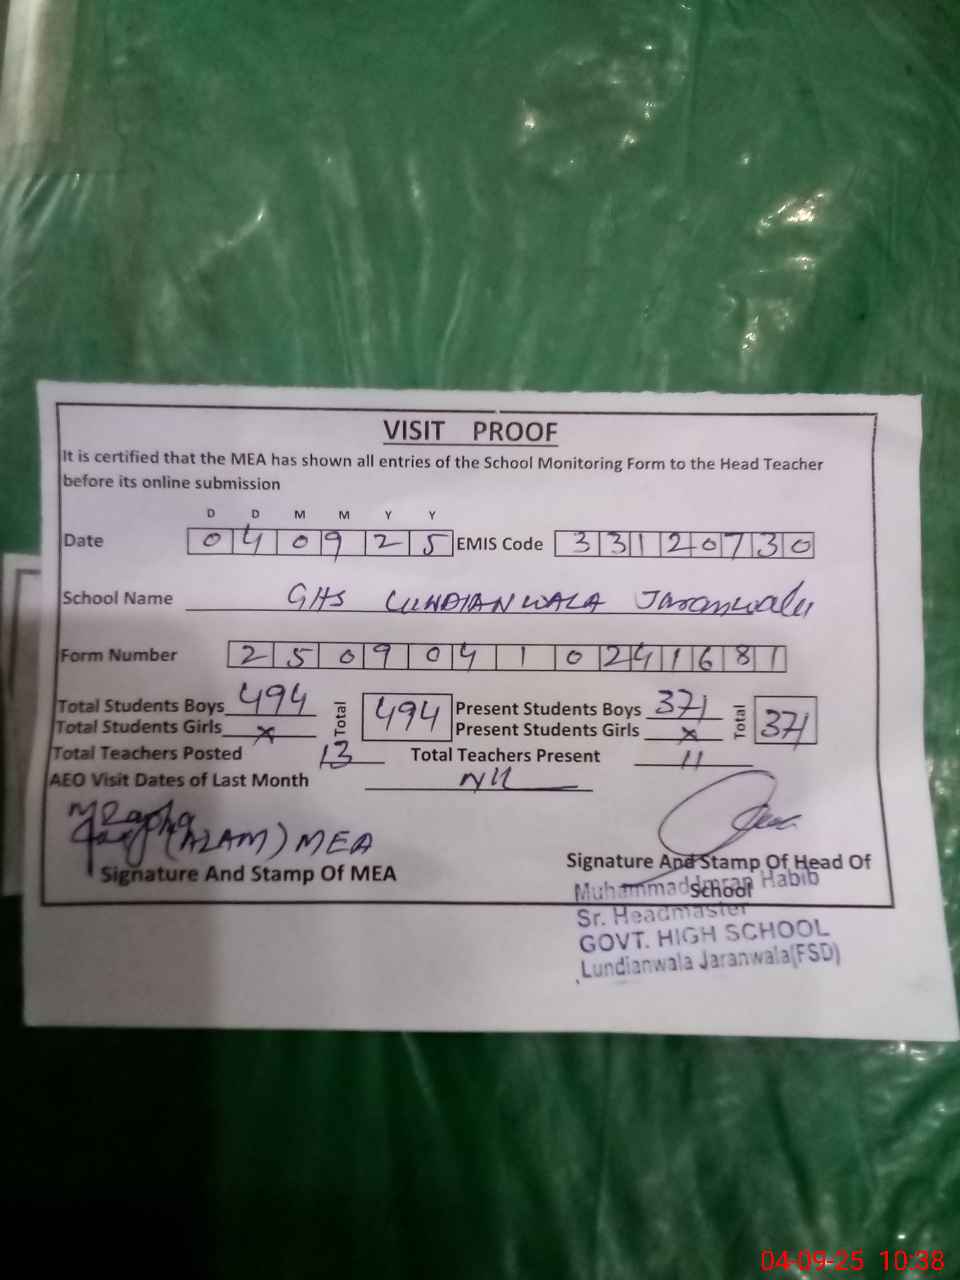 VISIT PROOF
It is certified that the MEA has shown all entries of the School Monitoring Form to the Head Teacher
before its online submission
D D M M Y Y
Date 0 4 0 9 2 5 EMIS Code 3 3 1 2 0 7 3 0
School Name GHS LUNDIANWALA Jaranwala
Form Number 2 5 0 9 0 4 1 0 2 4 1 6 8 1
Total Students Boys 494 Total 494 Present Students Boys 371 Total 371
Total Students Girls x Present Students Girls x
Total Teachers Posted 13 Total Teachers Present 11
AEO Visit Dates of Last Month Nil
(AZAM) MEA
Signature And Stamp Of MEA
Signature And Stamp Of Head Of
School
Muhammad Imran Habib
Sr. Headmaster
GOVT. HIGH SCHOOL
Lundianwala Jaranwala(FSD)
04-09-25 10:38